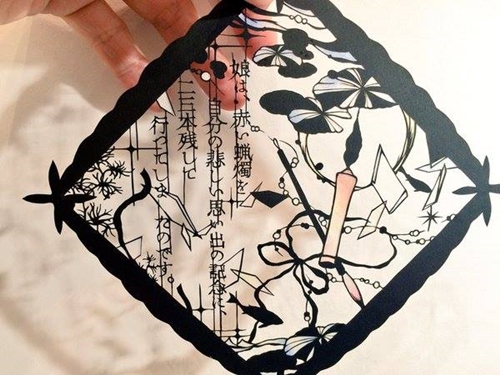 娘は、赤い蝋燭を
自分の悲しい思い出の記念に、
二三本残して
行ってしまったのです。